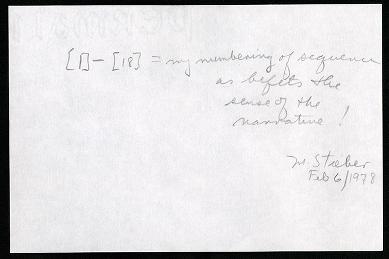 [1] – [18] = my numbering of sequence
as befits the
sense of the
narrative!
M. Stieber
Feb 6/1978